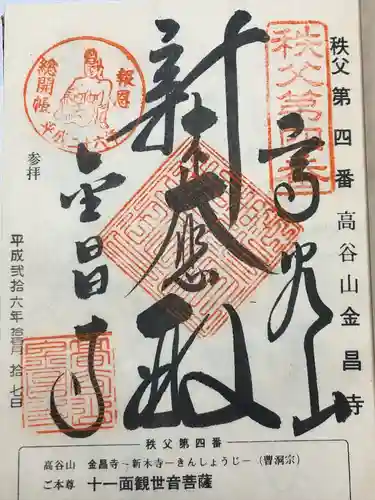 秩父第四番 高谷山金昌寺
秩父第四番
高谷山
新木大悲殿
金昌寺
報恩
總開帳
参拝
平成弐拾六年 拾壱月 拾七日
秩父第四番
高谷山 金昌寺-新木寺-きんしょうじ-(曹洞宗)
ご本尊 十一面観世音菩薩